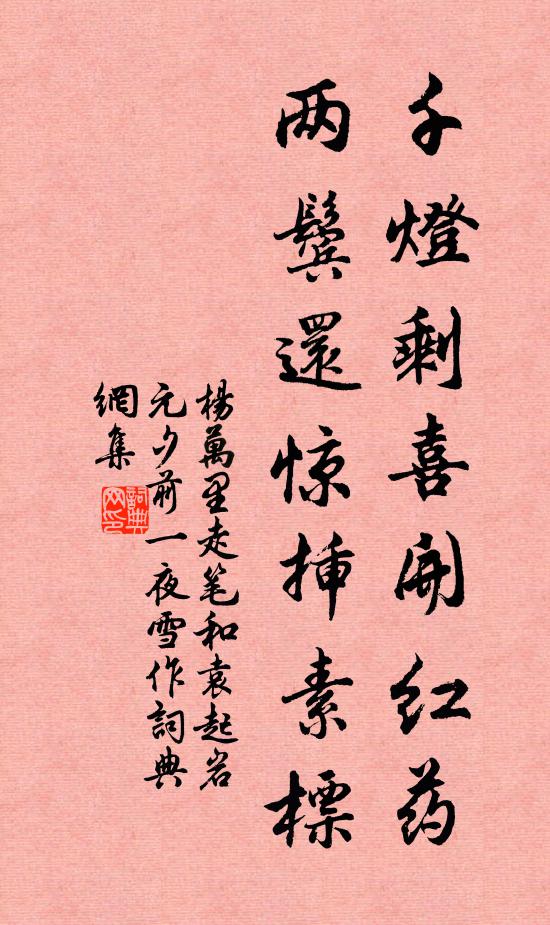 千燈剩喜開红药
两鬓還惊插素標
楊萬里走笔和袁起岩
元夕前一夜雪作詞典
網集
詞典网印